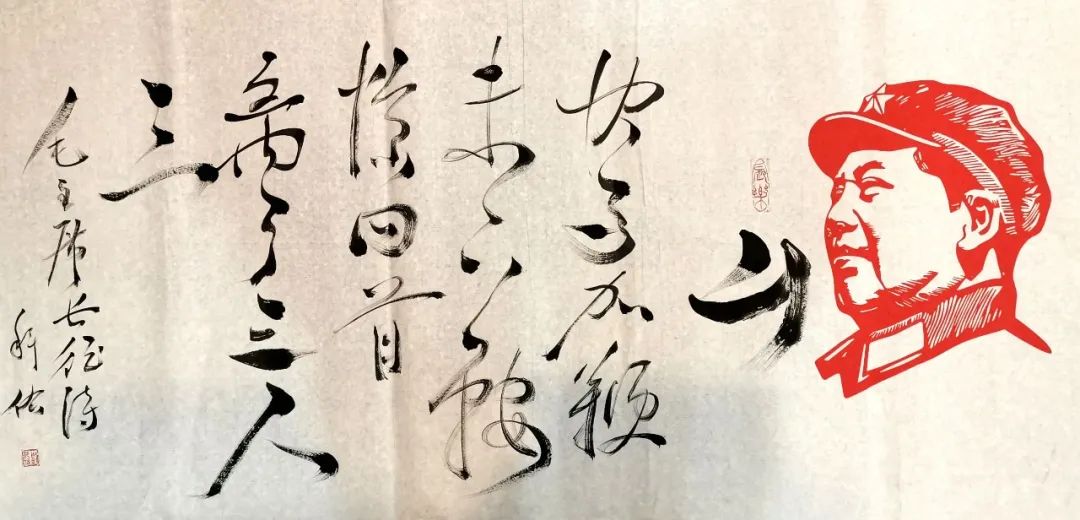 長樂
山
快马加鞭
未下鞍
惊回首
离天三尺
三
毛主席长征诗